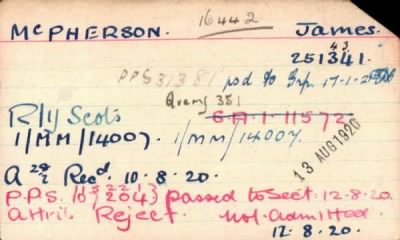 16442
McPHERSON. James.
43.
251341.
PPS 31381 psd to Grp. 17-1-2
Query 351
R/y Scots G.A.1. 11572
1/MM/14007. 1/MM/14007.
13 AUG 1920
A 28/2 Recd. 10.8.20.
P.P.S. passed to Sect: 12-8-20.
Attrib Reject. Not Admitted.
12.8.20.